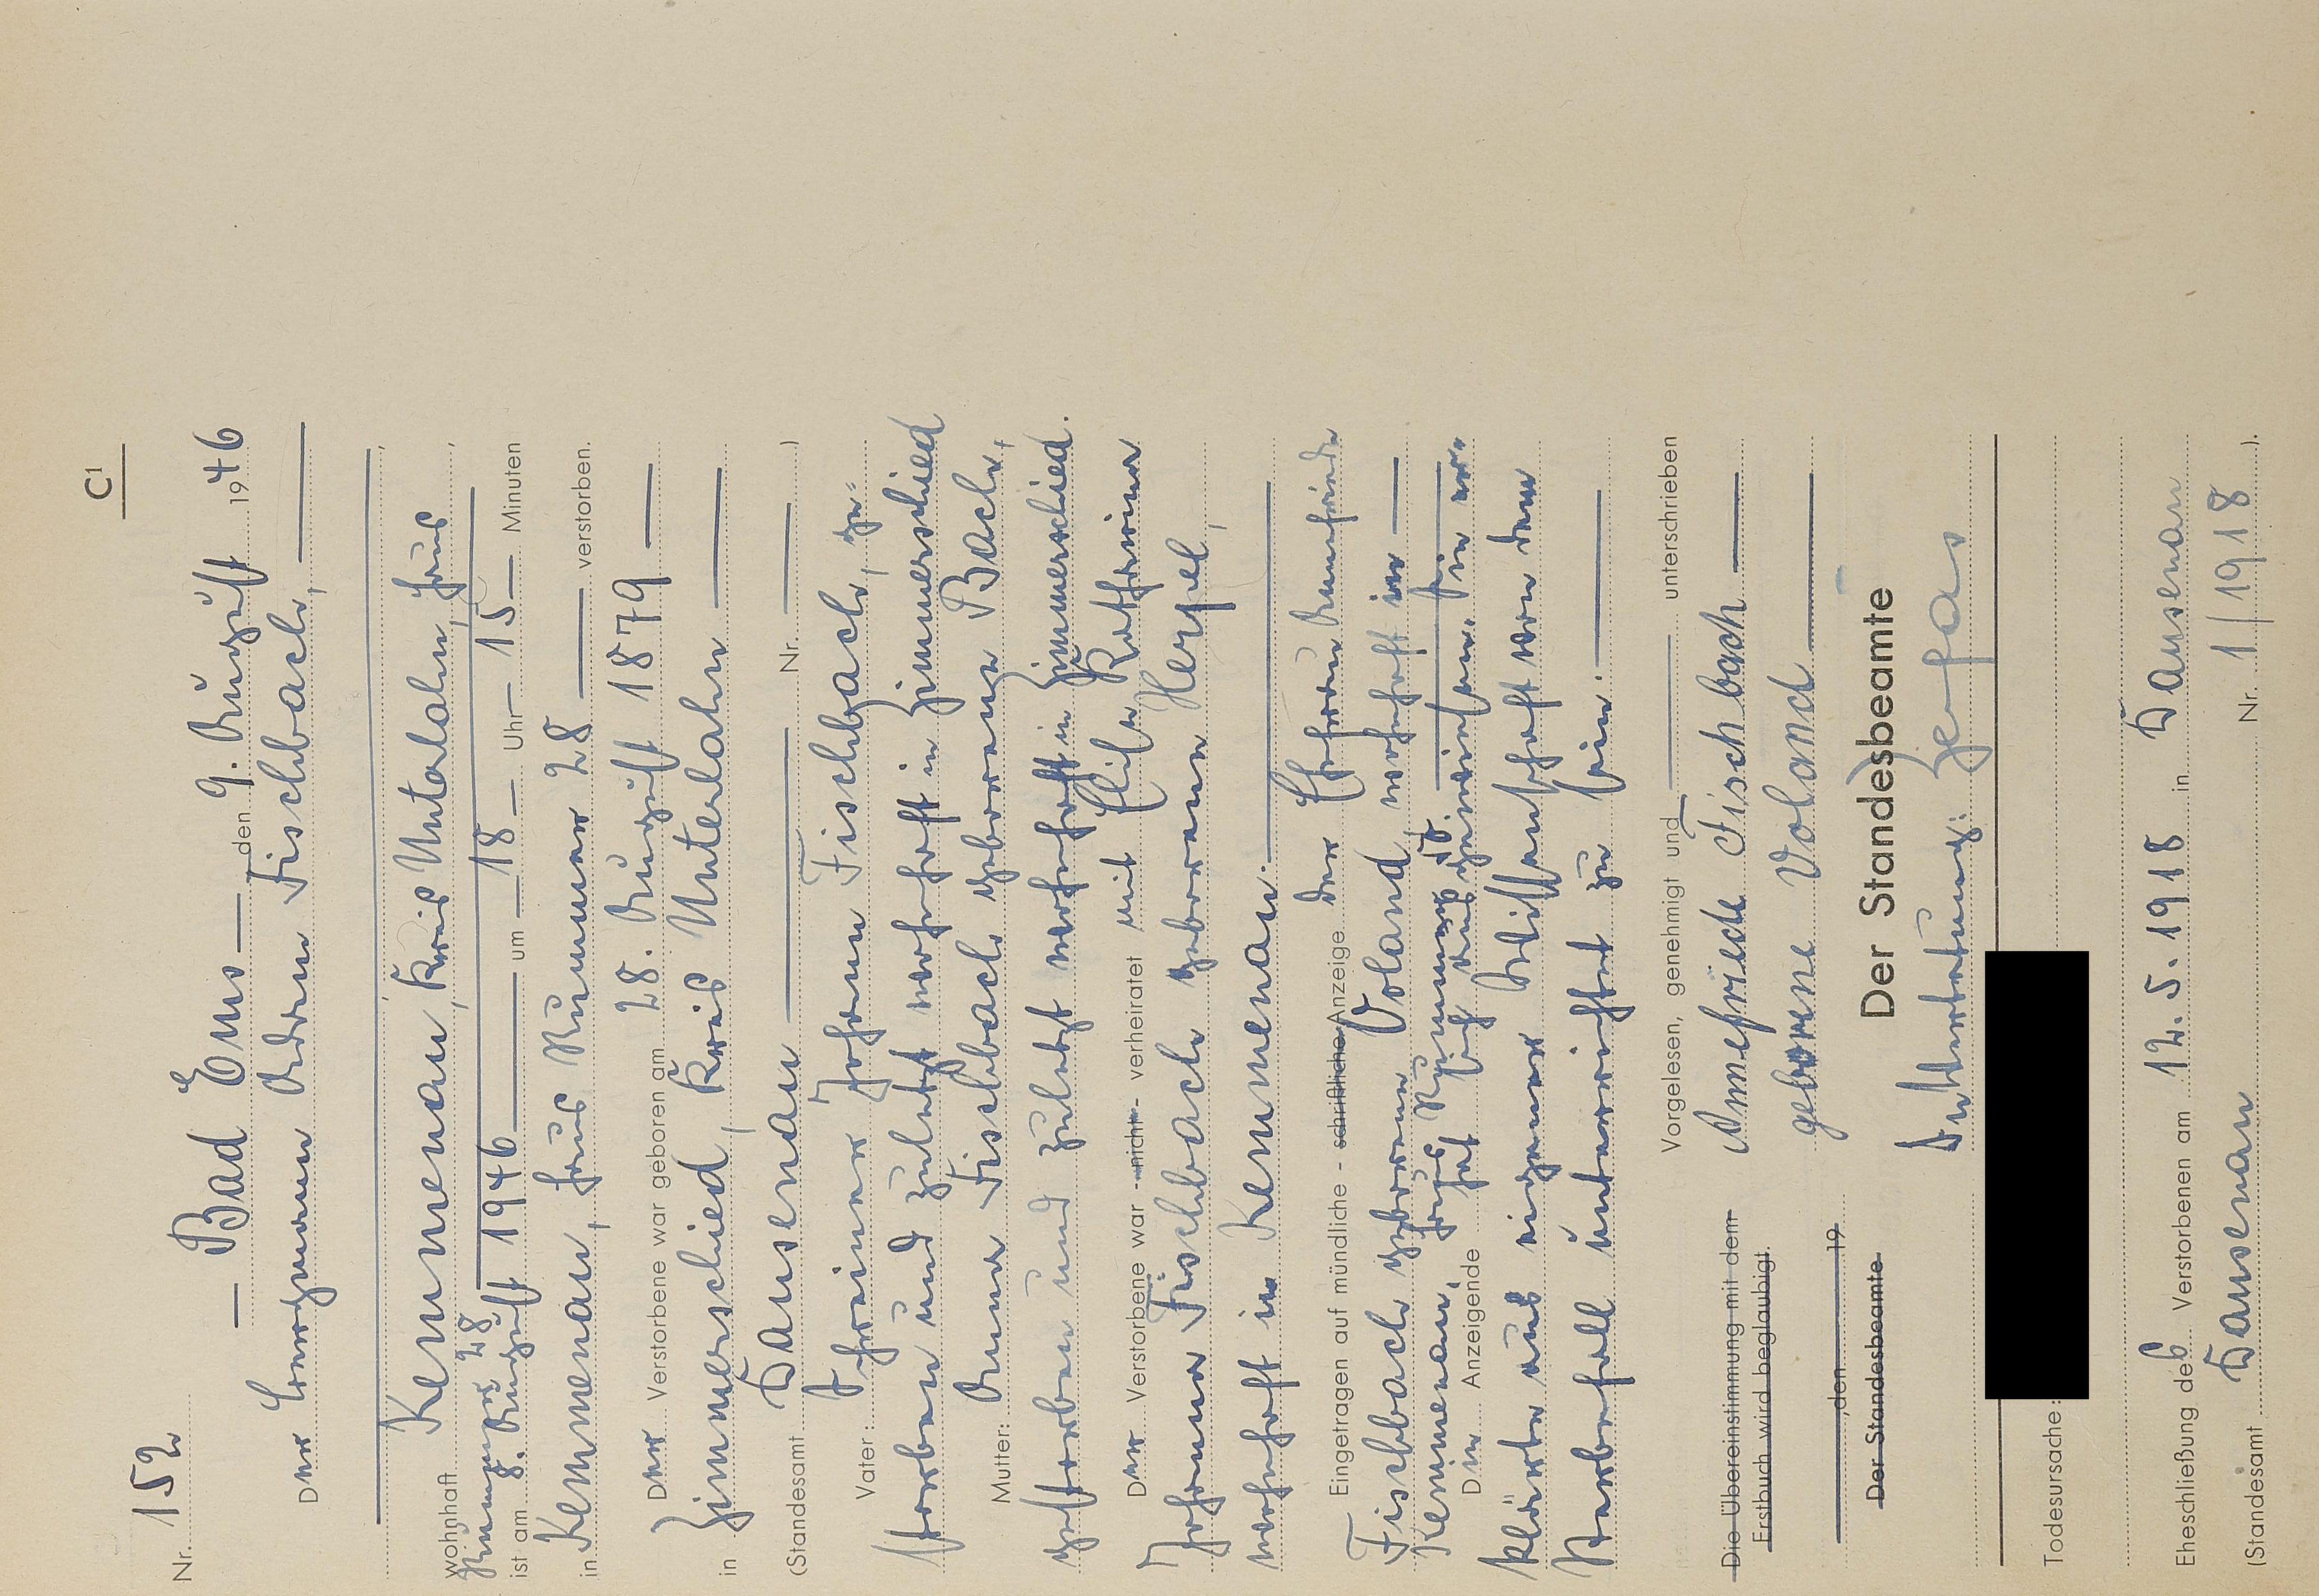 C1
Nr. 152
— Bad Ems — , den 9. August 1946
Der Bergmann Adam Fischbach, —
wohnhaft Kemmenau, Kreis Unterlahn, Haus
Nummer 28
ist am 8. August 1946 — um — 18 — Uhr — 15 — Minuten
in Kemmenau, Haus Nummer 28 — verstorben.
Der Verstorbene war geboren am 28. August 1879 —
in Zimmerschied, Kreis Unterlahn —
(Standesamt Dausenau — Nr. — )
Vater: Johann Fischbach, ge=
storben und zuletzt wohnhaft in Zimmerschied
Mutter: Anna Fischbach geborene Bach,
gestorben und zuletzt wohnhaft in Zimmerschied.
Der Verstorbene war - nicht - verheiratet mit Elise Katharina
Johanna Fischbach geborenen Herpel,
wohnhaft in Kemmenau. —
Eingetragen auf mündliche - schriftliche - Anzeige der Ehefrau Annefriede
Fischbach geborene Voland, wohnhaft in —
Kemmenau, Haus Nummer 50. —
Die Anzeigende hat sich ausgewiesen. Sie er=
klärte aus eigener Wissenschaft von dem
Sterbefall unterrichtet zu sein. —
Vorgelesen, genehmigt und — unterschrieben
Annefriede Fischbach —
geborene Voland —
Die Übereinstimmung mit dem
Erstbuch wird beglaubigt.
, den 19
Der Standesbeamte
Der Standesbeamte
In Vertretung:
Todesursache:
Eheschließung des Verstorbenen am 12.5.1918 in Dausenau
(Standesamt Dausenau Nr. 1/1918 ).